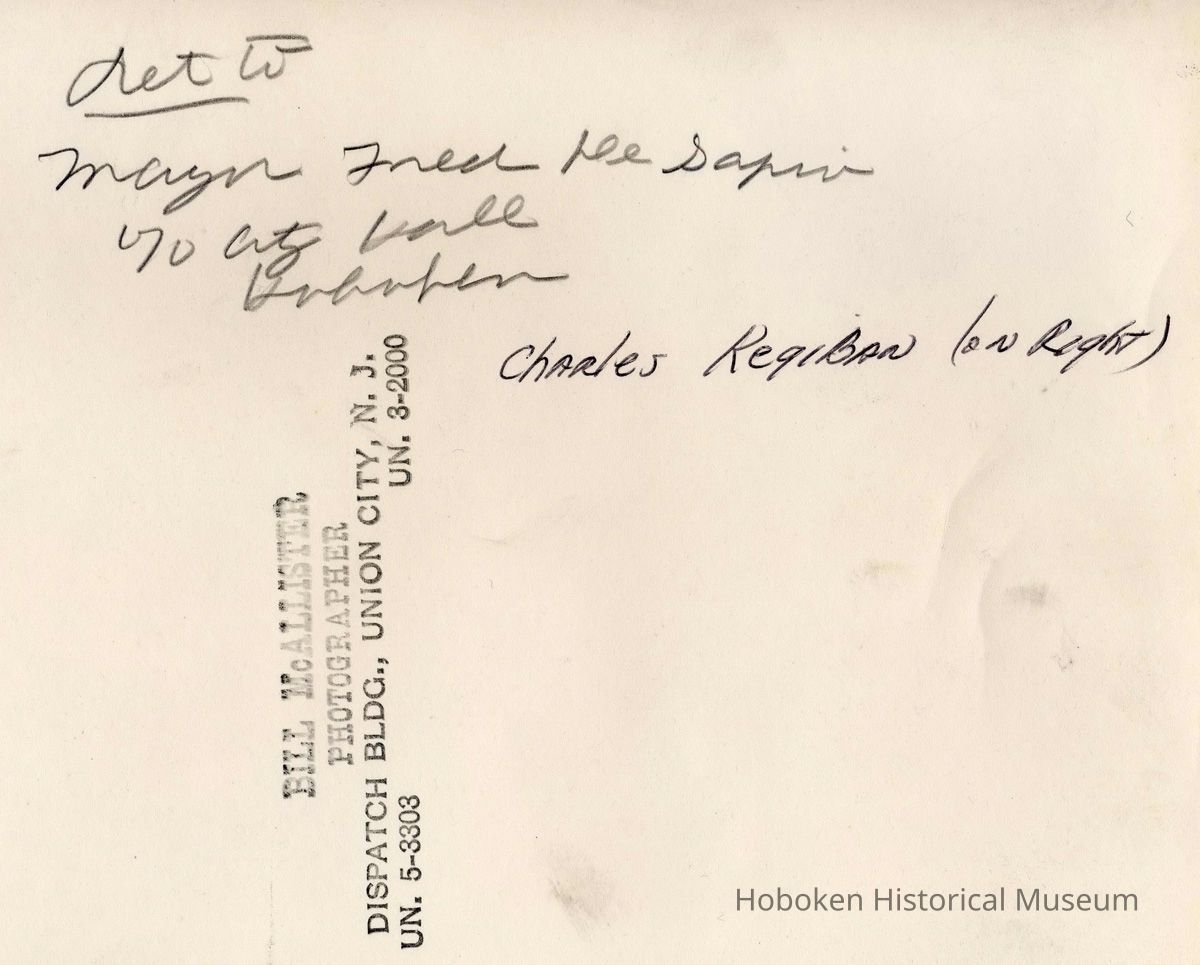 Ret to
Mayor Fred De Sapio
c/o City Hall
Hoboken
Charles RegiBAN (on Right)
BILL McALLISTER
PHOTOGRAPHER
DISPATCH BLDG., UNION CITY, N. J.
UN. 5-3303 UN. 3-2000
Hoboken Historical Museum